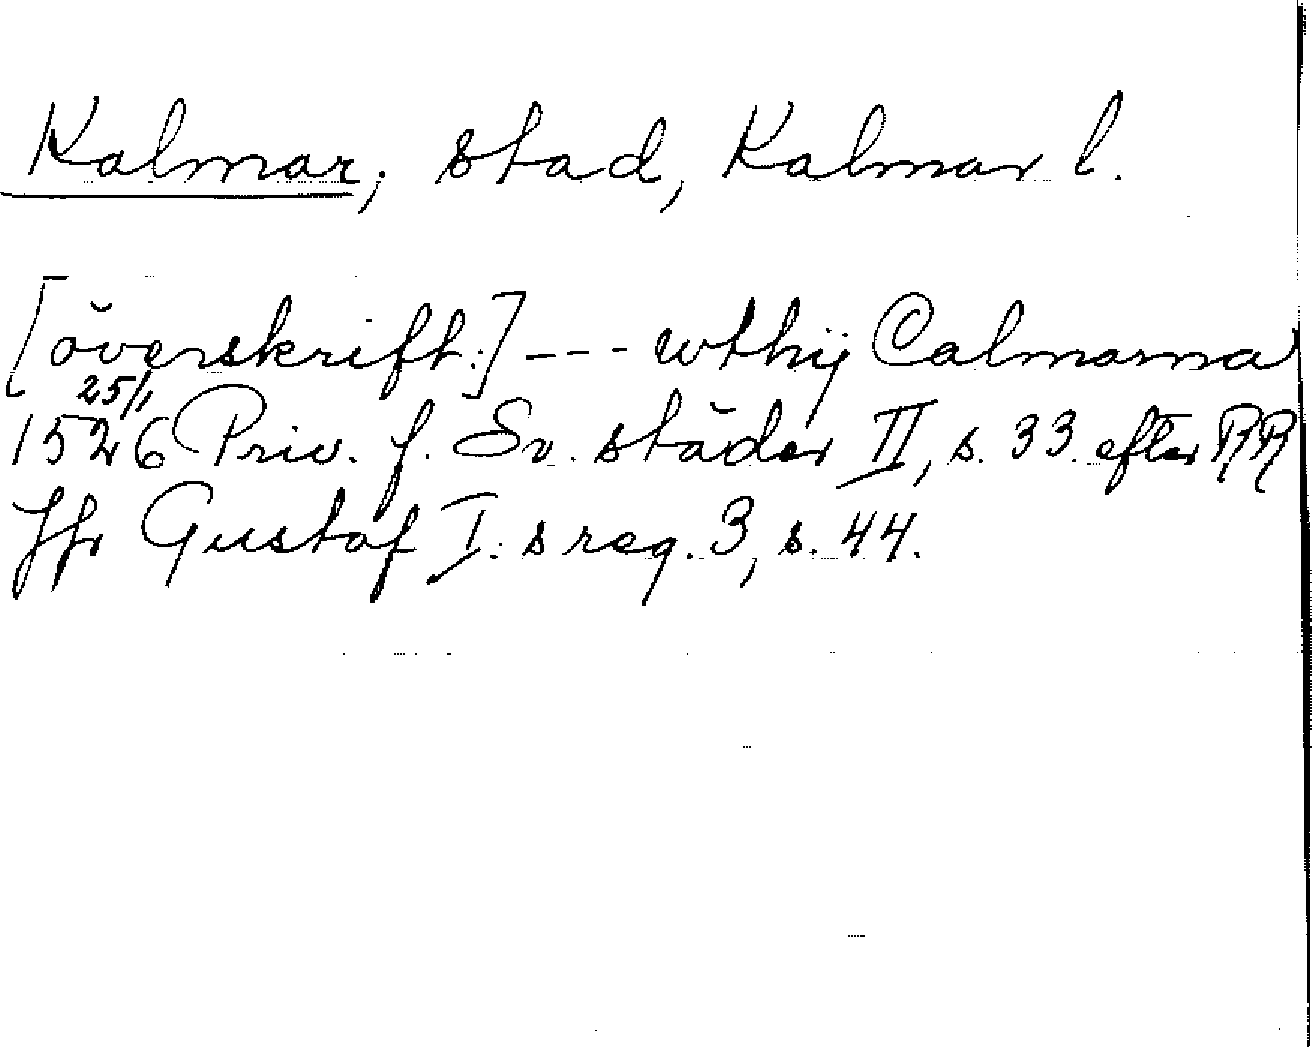 Kalmar, stad, Kalmar l.
[överskrift:] --- wthij Calmarna
25/1
1526 Priv. f. Sv. städer II, s. 33 efter RR
Jfr Gustaf I:s reg. 3, s. 44.